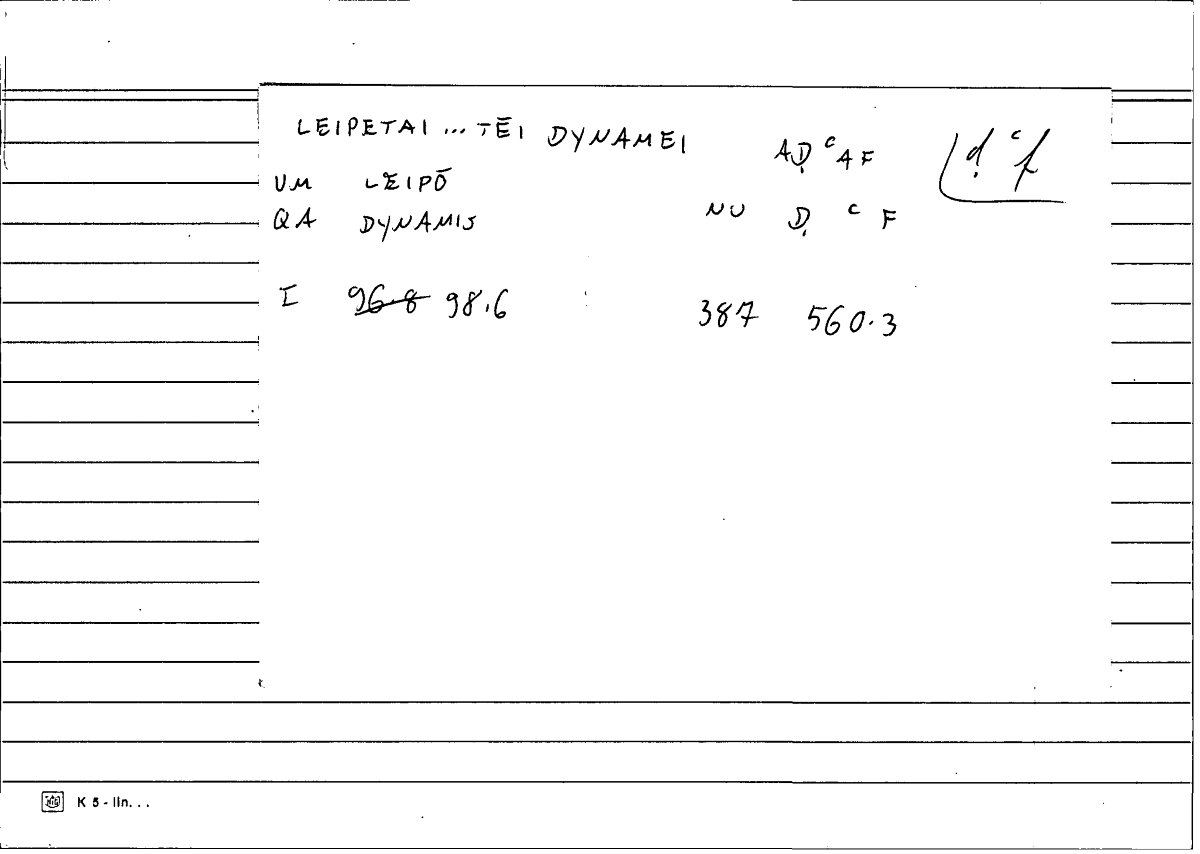 LEIPETAI ... TĒI DYNAMEI AḌ ᶜAF ḍ ᶜf
VM LEIPŌ
QA DYNAMIS NU Ḍ ᶜ F
I ~~96.8~~ 98.6 387 560.3
K 5 - lin. . .